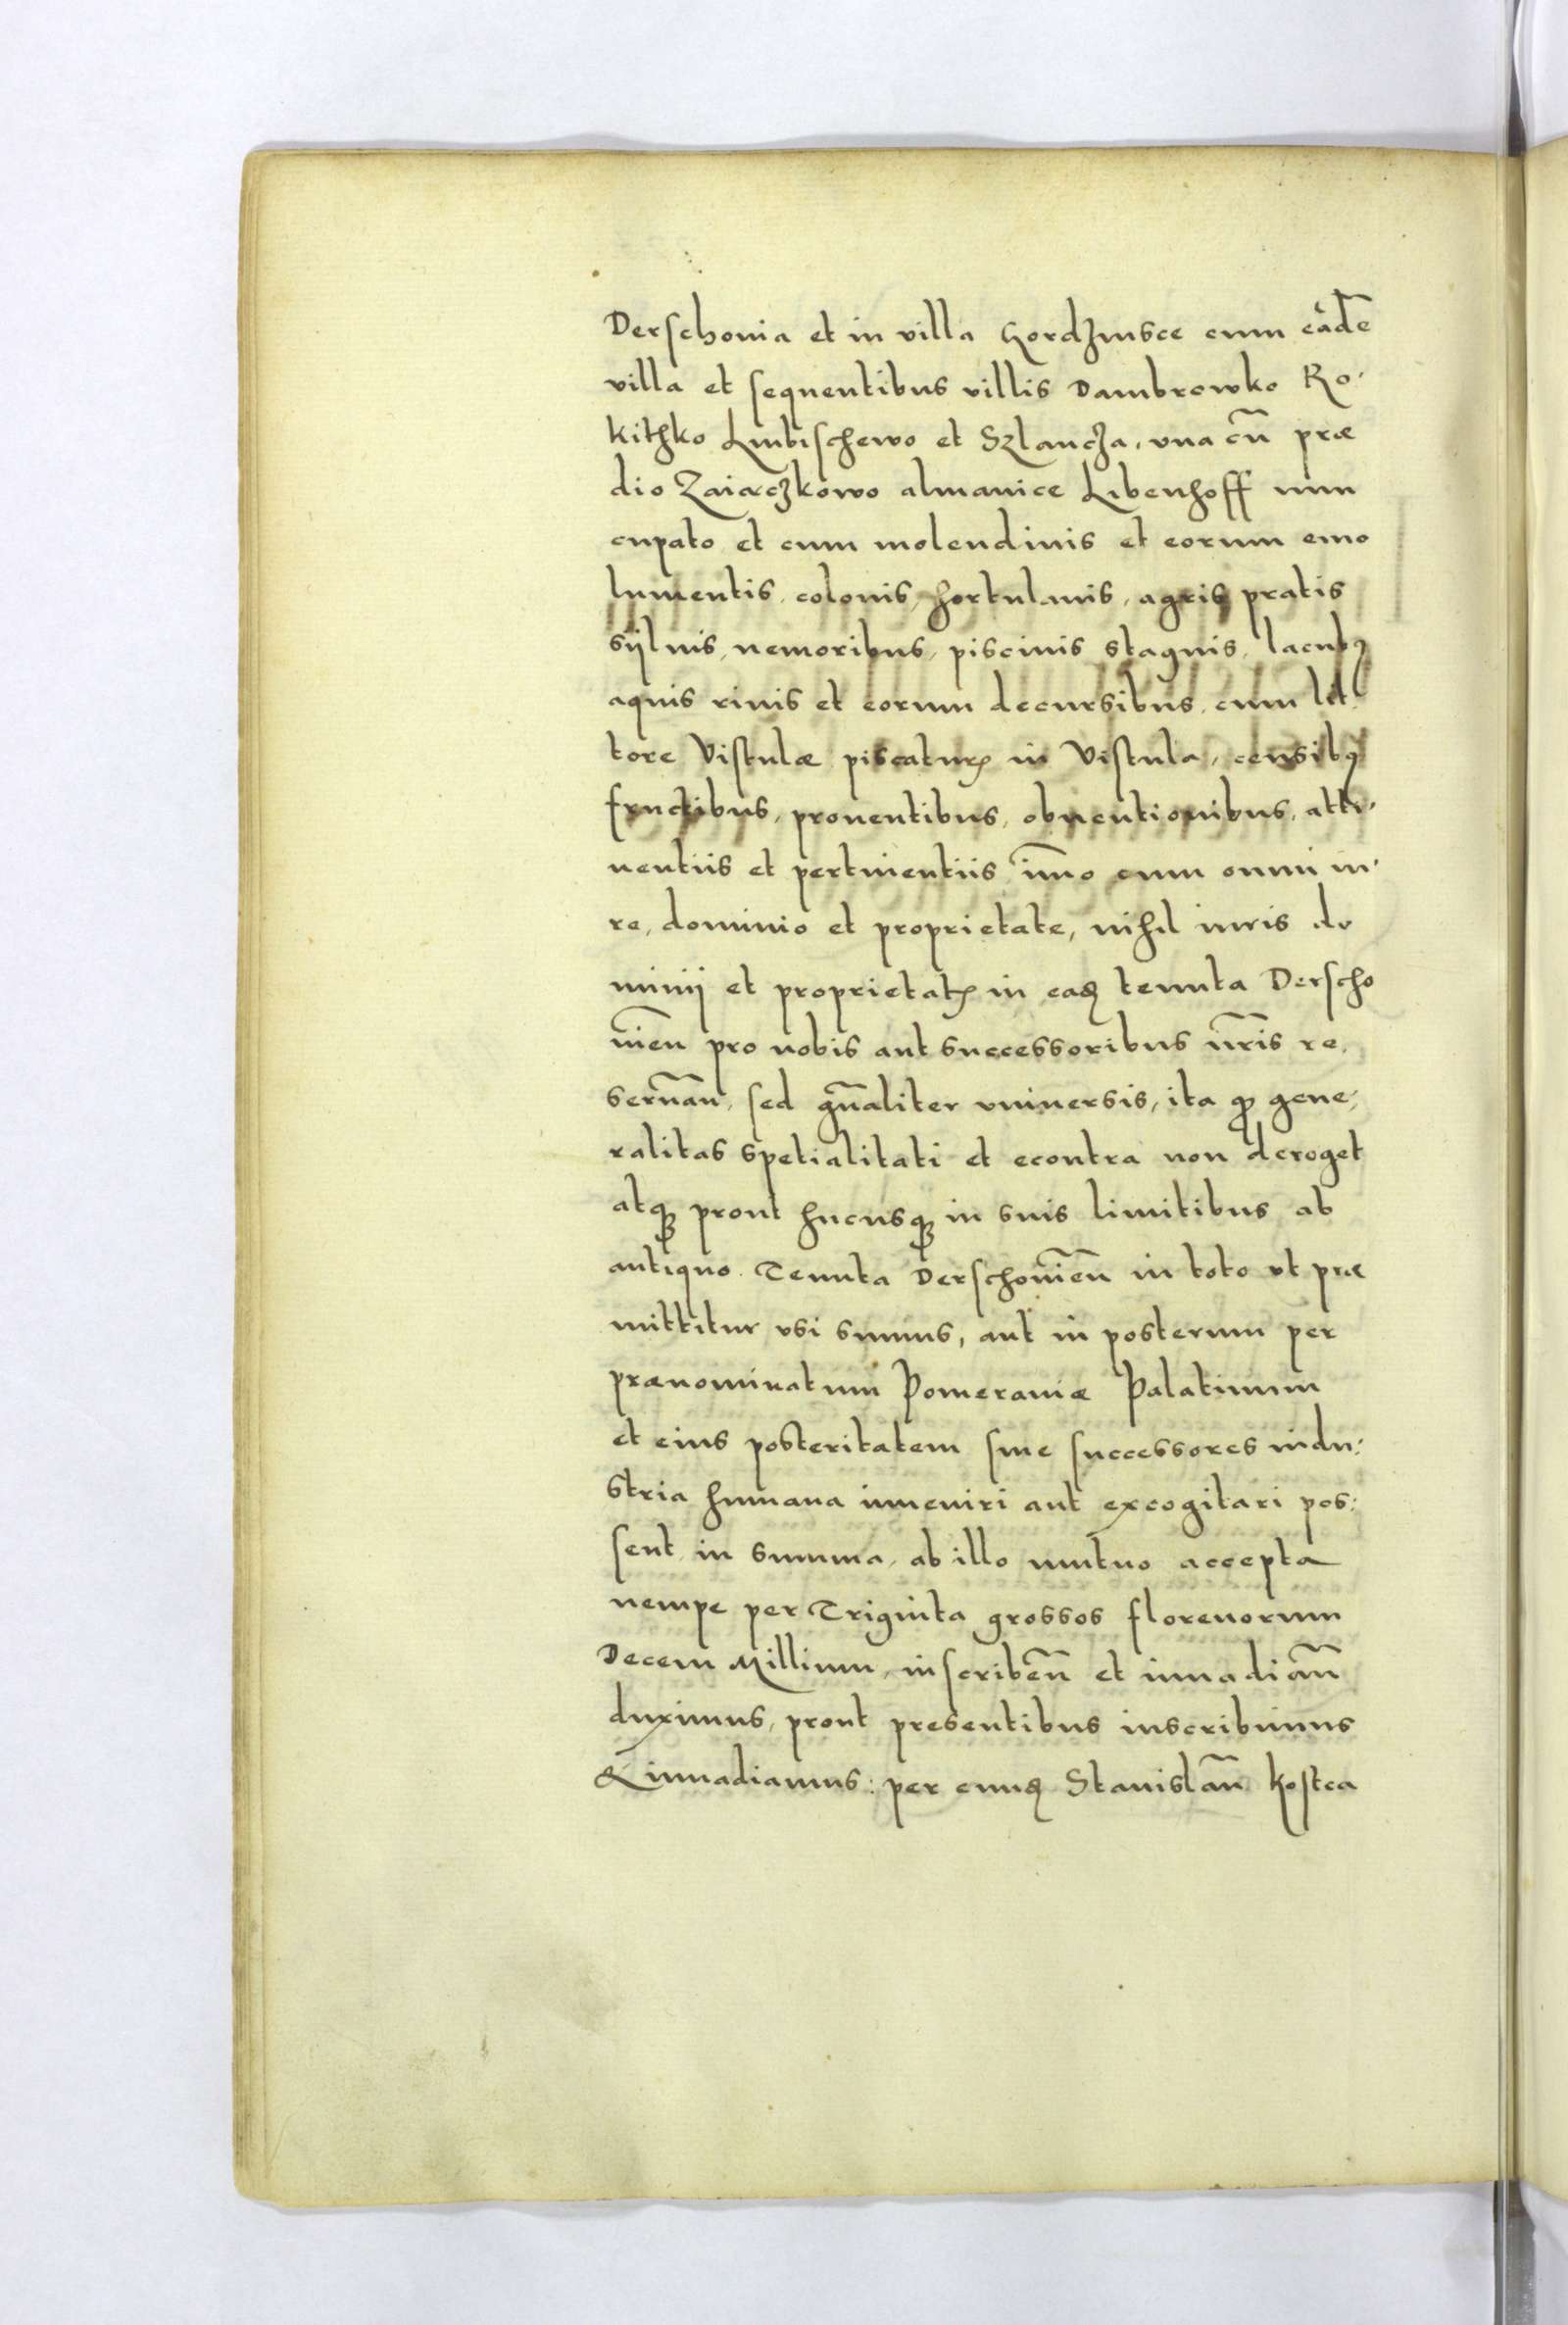 Derschouia et in villa Gordzinsce cum eâde̅
villa et sequentibus villis Dambrowko Ro-
kithko Lubischewo et Szlancza, vna cu̅ præ
dio Zaiączkowo almanice Libenhoff nun
cupato et cum molendinis et eorum emo
lumentis, colonis, hortulanis, agris, pratis
sÿluis, nemoribus, piscinis stagnis, lacubꝫ
aquis riuis et eorum decursibus, cum lit
tore Vistulæ piscaturꝭ in Vistula, censibꝫ
fructibus, prouentibus, obuentionibus, atti-
nentiis et pertinentiis im̅o cum omni iu-
re, dominio et proprietate, nihil iuris do
minij et proprietatꝭ in eaꝗ tenuta Derscho
uien̅ pro nobis aut successoribus n̅ris re,
seruan̅, sed gn̅aliter vniuersis, ita ꝙ gene,
ralitas spetialitati et econtra non deroget
atqꝫ prout hucusqꝫ in suis limitibus ab
antiquo Tenuta Derschouien̅ in toto vt præ
mittitur vsi sumus, aut in posterum per
prænominatum Pomeraniæ Palatinum
et eius posteritatem siue successores indu:
stria humana inueniri aut excogitari pos:
sent, in summa, ab illo mutuo accepta
nempe per Triginta grossos florenorum
Decem Millium, inscriben̅ et inuadian̅
duximus, prout presentibus inscribimus
& inuadiamus: per eunꝗ Stanislau̅ Kostca